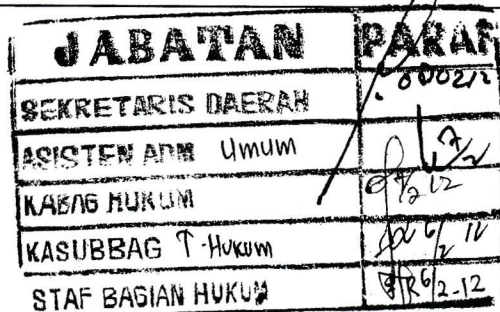 JABATAN PARAF
SEKRETARIS DAERAH 080212
ASISTEN ADM Umum 7/2
KABAG HUKUM 7/2 12
KASUBBAG T-Hukum 6/2 12
STAF BAGIAN HUKUM 6/2-12